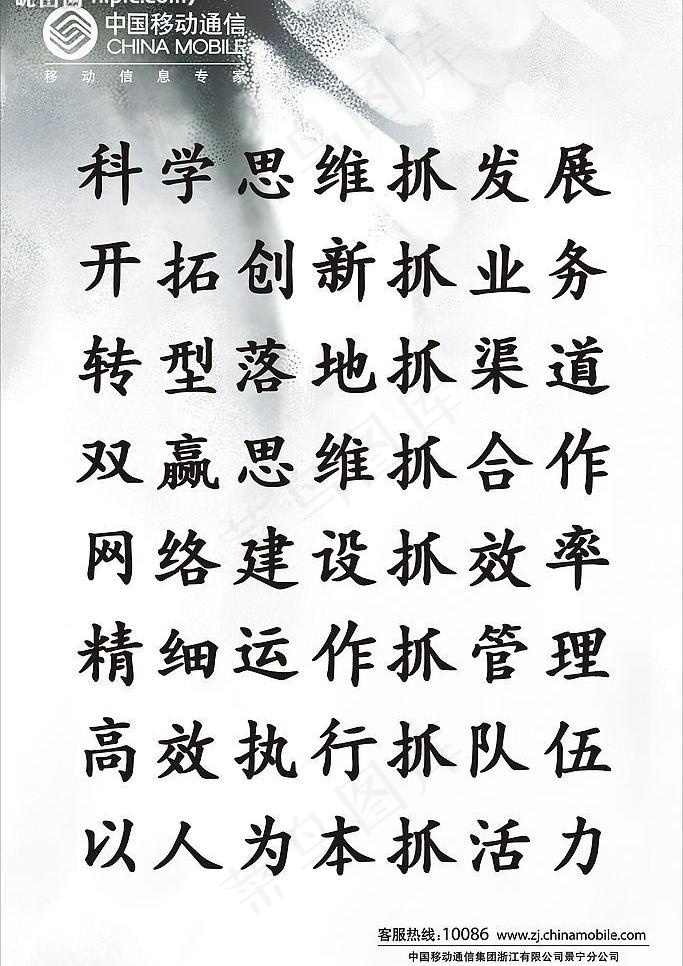 昵图网 nipic.com/
中国移动通信
CHINA MOBILE
移动信息专家
科学思维抓发展
开拓创新抓业务
转型落地抓渠道
双赢思维抓合作
网络建设抓效率
精细运作抓管理
高效执行抓队伍
以人为本抓活力
菜鸟图库
菜鸟图库
菜鸟图库
客服热线:10086 www.zj.chinamobile.com
中国移动通信集团浙江有限公司景宁分公司